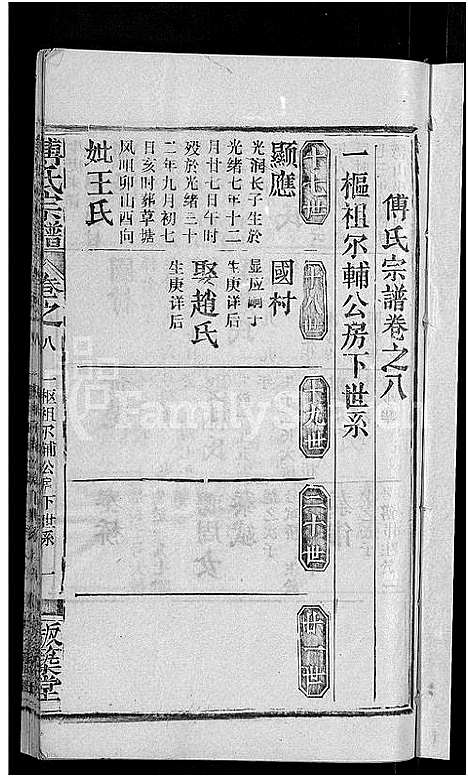 傅氏宗譜卷之八
一樞祖尔輔公房下世系
十七世
十八世
十九世
二十世
廿一世
顯應
光润长子生於
光绪七年十二
月廿七日午时
殁於光绪三十
二年九月初七
日亥时葬草塘
凤咀卯山西向
妣王氏
國村
显应嗣子
生庚详后
娶趙氏
生庚详后
傅氏宗譜
卷之八
一樞祖尔輔公房下世系
一
版築堂
FamilySearch